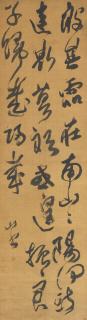 殷其靁在南山之陽何斯
違斯莫敢或遑振振君
子歸哉歸哉
山書